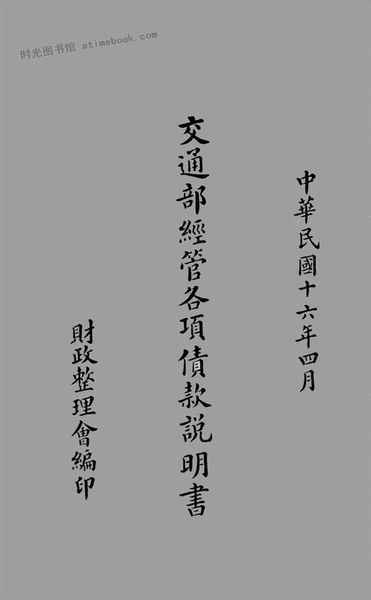 时光图书馆 stimebook.com
中華民國十六年四月
交通部經管各項債款説明書
財政整理會編印